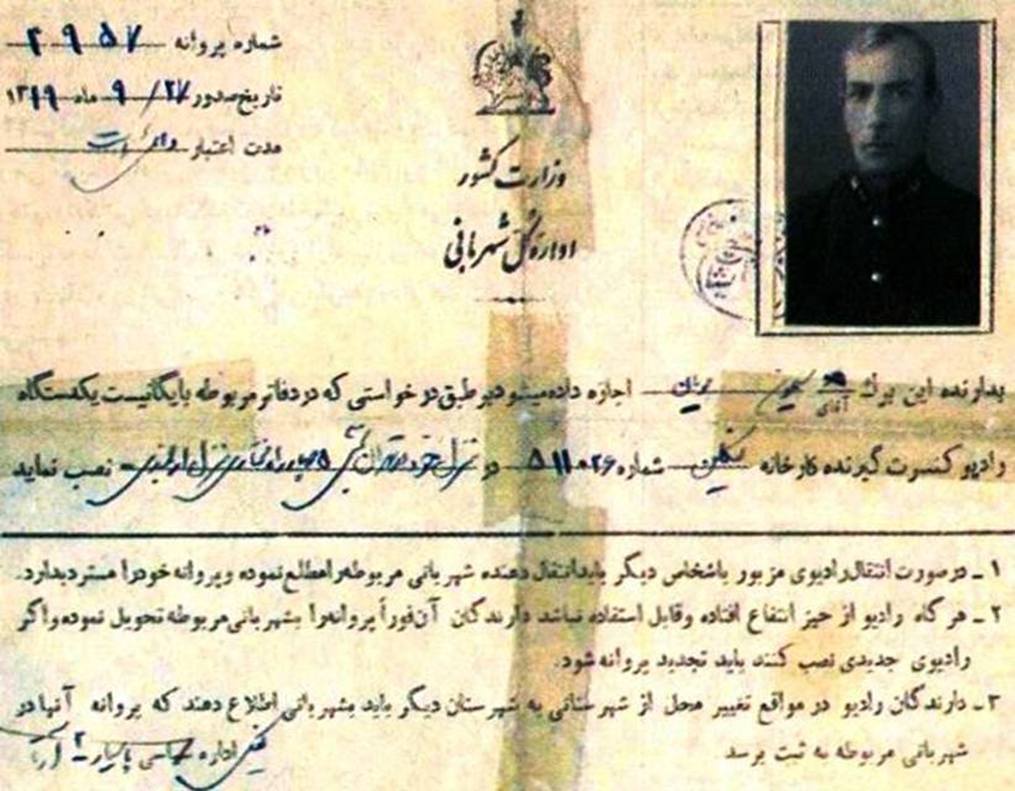 شماره پروانه ۲۹۵۷
تاریخ صدور ۲۷/ ۹ ماه ۱۳۱۹
مدت اعتبار دائمی است
وزارت کشور
اداره کل شهربانی
بدارنده این برگ آقای اجازه داده میشود بر طبق درخواستی که در دفاتر مربوطه بایگانیست یکدستگاه
رادیو کنسرت گیرنده کارخانه شماره ۵۱۱۰۲۶ در منزل خود نصب نماید
۱ ـ در صورت انتقال رادیوی مزبور باشخاص دیگر باید انتقال دهنده شهربانی مربوطه را مطلع نموده و پروانه خود را مسترد بدارد.
۲ ـ هر گاه رادیو از حیز انتفاع افتاده و قابل استفاده نباشد دارندگان آن فوراً پروانه را بشهربانی مربوطه تحویل نموده و اگر
رادیوی جدیدی نصب کنند باید تجدید پروانه شود.
۳ ـ دارندگان رادیو در مواقع تغییر محل از شهرستانی به شهرستان دیگر باید بشهربانی اطلاع دهند که پروانه آنها در
شهربانی مربوطه به ثبت برسد
اداره سیاسی پاسیار ۲